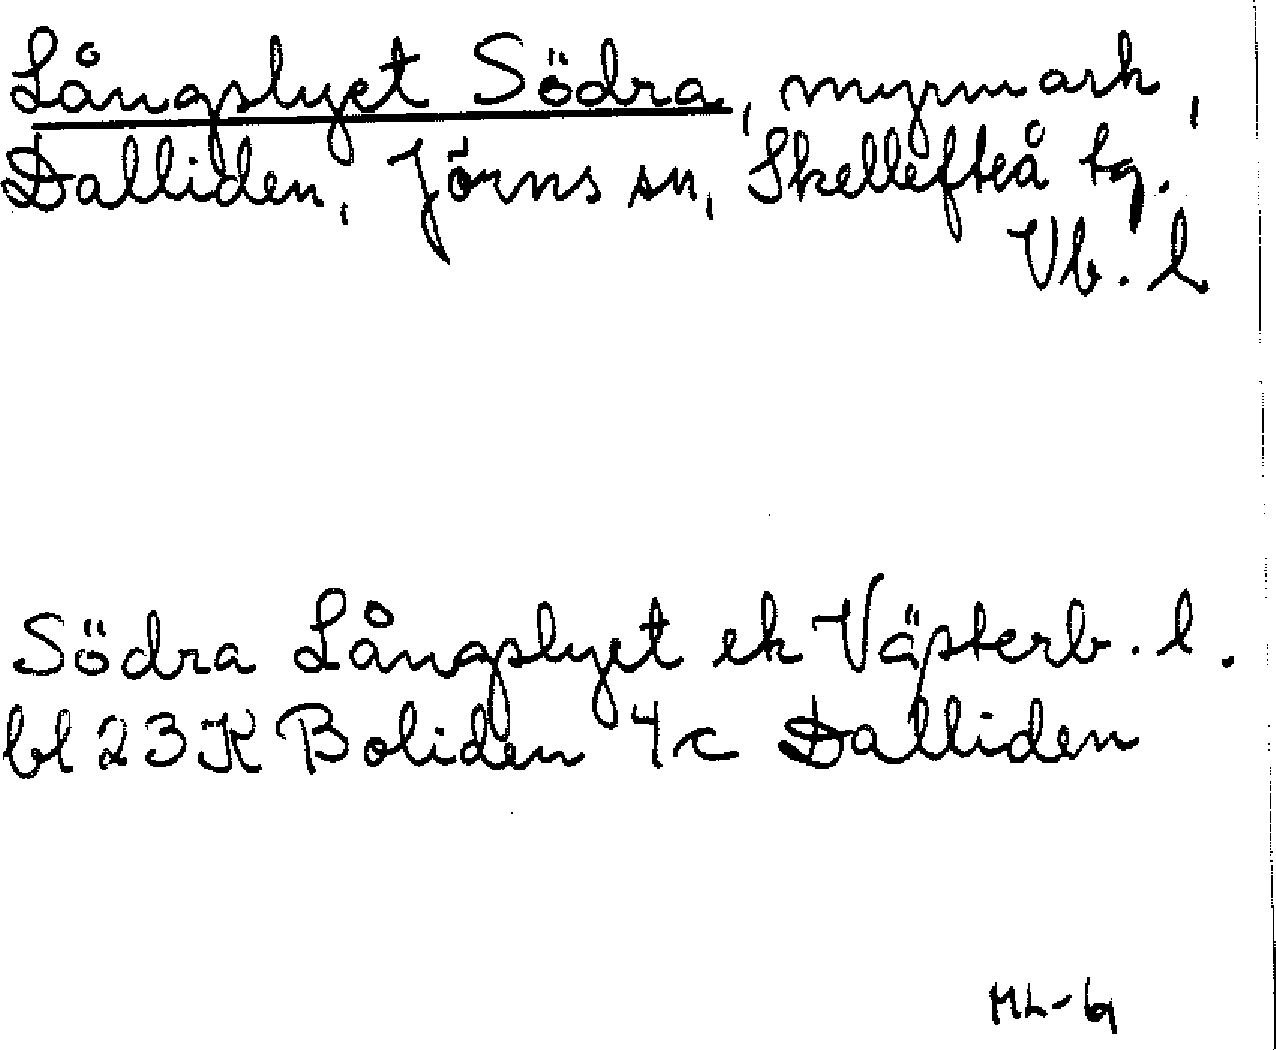 Långslyet Södra, myrmark,
Dalliden, Jörns sn, Skellefteå tg.
Vb. l
Södra Långslyet ek Västerb. l.
bl 23K Boliden 4c Dalliden